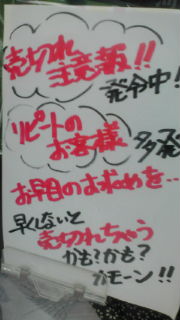 売切れ
注意報!!
発令中!
リピートの
お客様
多発
お早目のお求めを‥
早くしないと
売切れちゃう
かも?かも?
カモーン!!